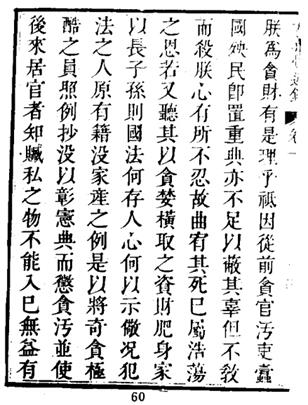 朕爲貪財有是理乎祇因從前貪官汚吏蠹
國殃民卽置重典亦不足以蔽其辜但不教
而殺朕心有所不忍故曲宥其死已屬浩蕩
之恩若又聽其以貪婪橫取之資財肥身家
以長子孫則國法何存人心何以示儆况犯
法之人原有籍没家產之例是以將奇貪極
酷之員照例抄没以彰憲典而懲貪汚並使
後來居官者知贓私之物不能入已無益有
60